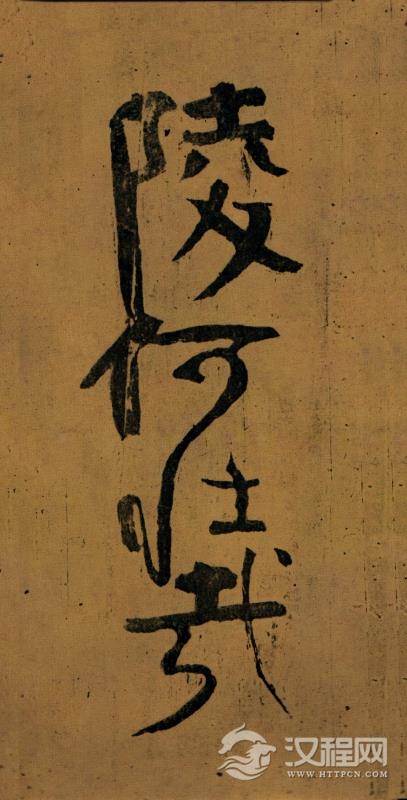 陵何在哉
汉程网
WWW.HTTPCN.COM